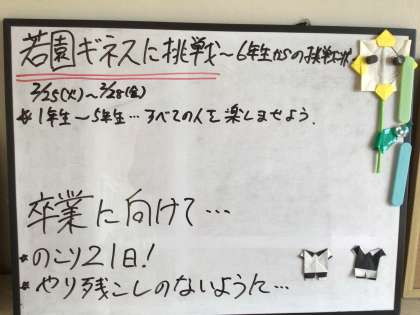 若園ギネスに挑戦～6年生からの挑戦状
2/25(火)～2/28(金)
*1年生～5年生…すべての人を楽しませよう.
卒業に向けて…
*のこり21日!
*やり残こしのないように…